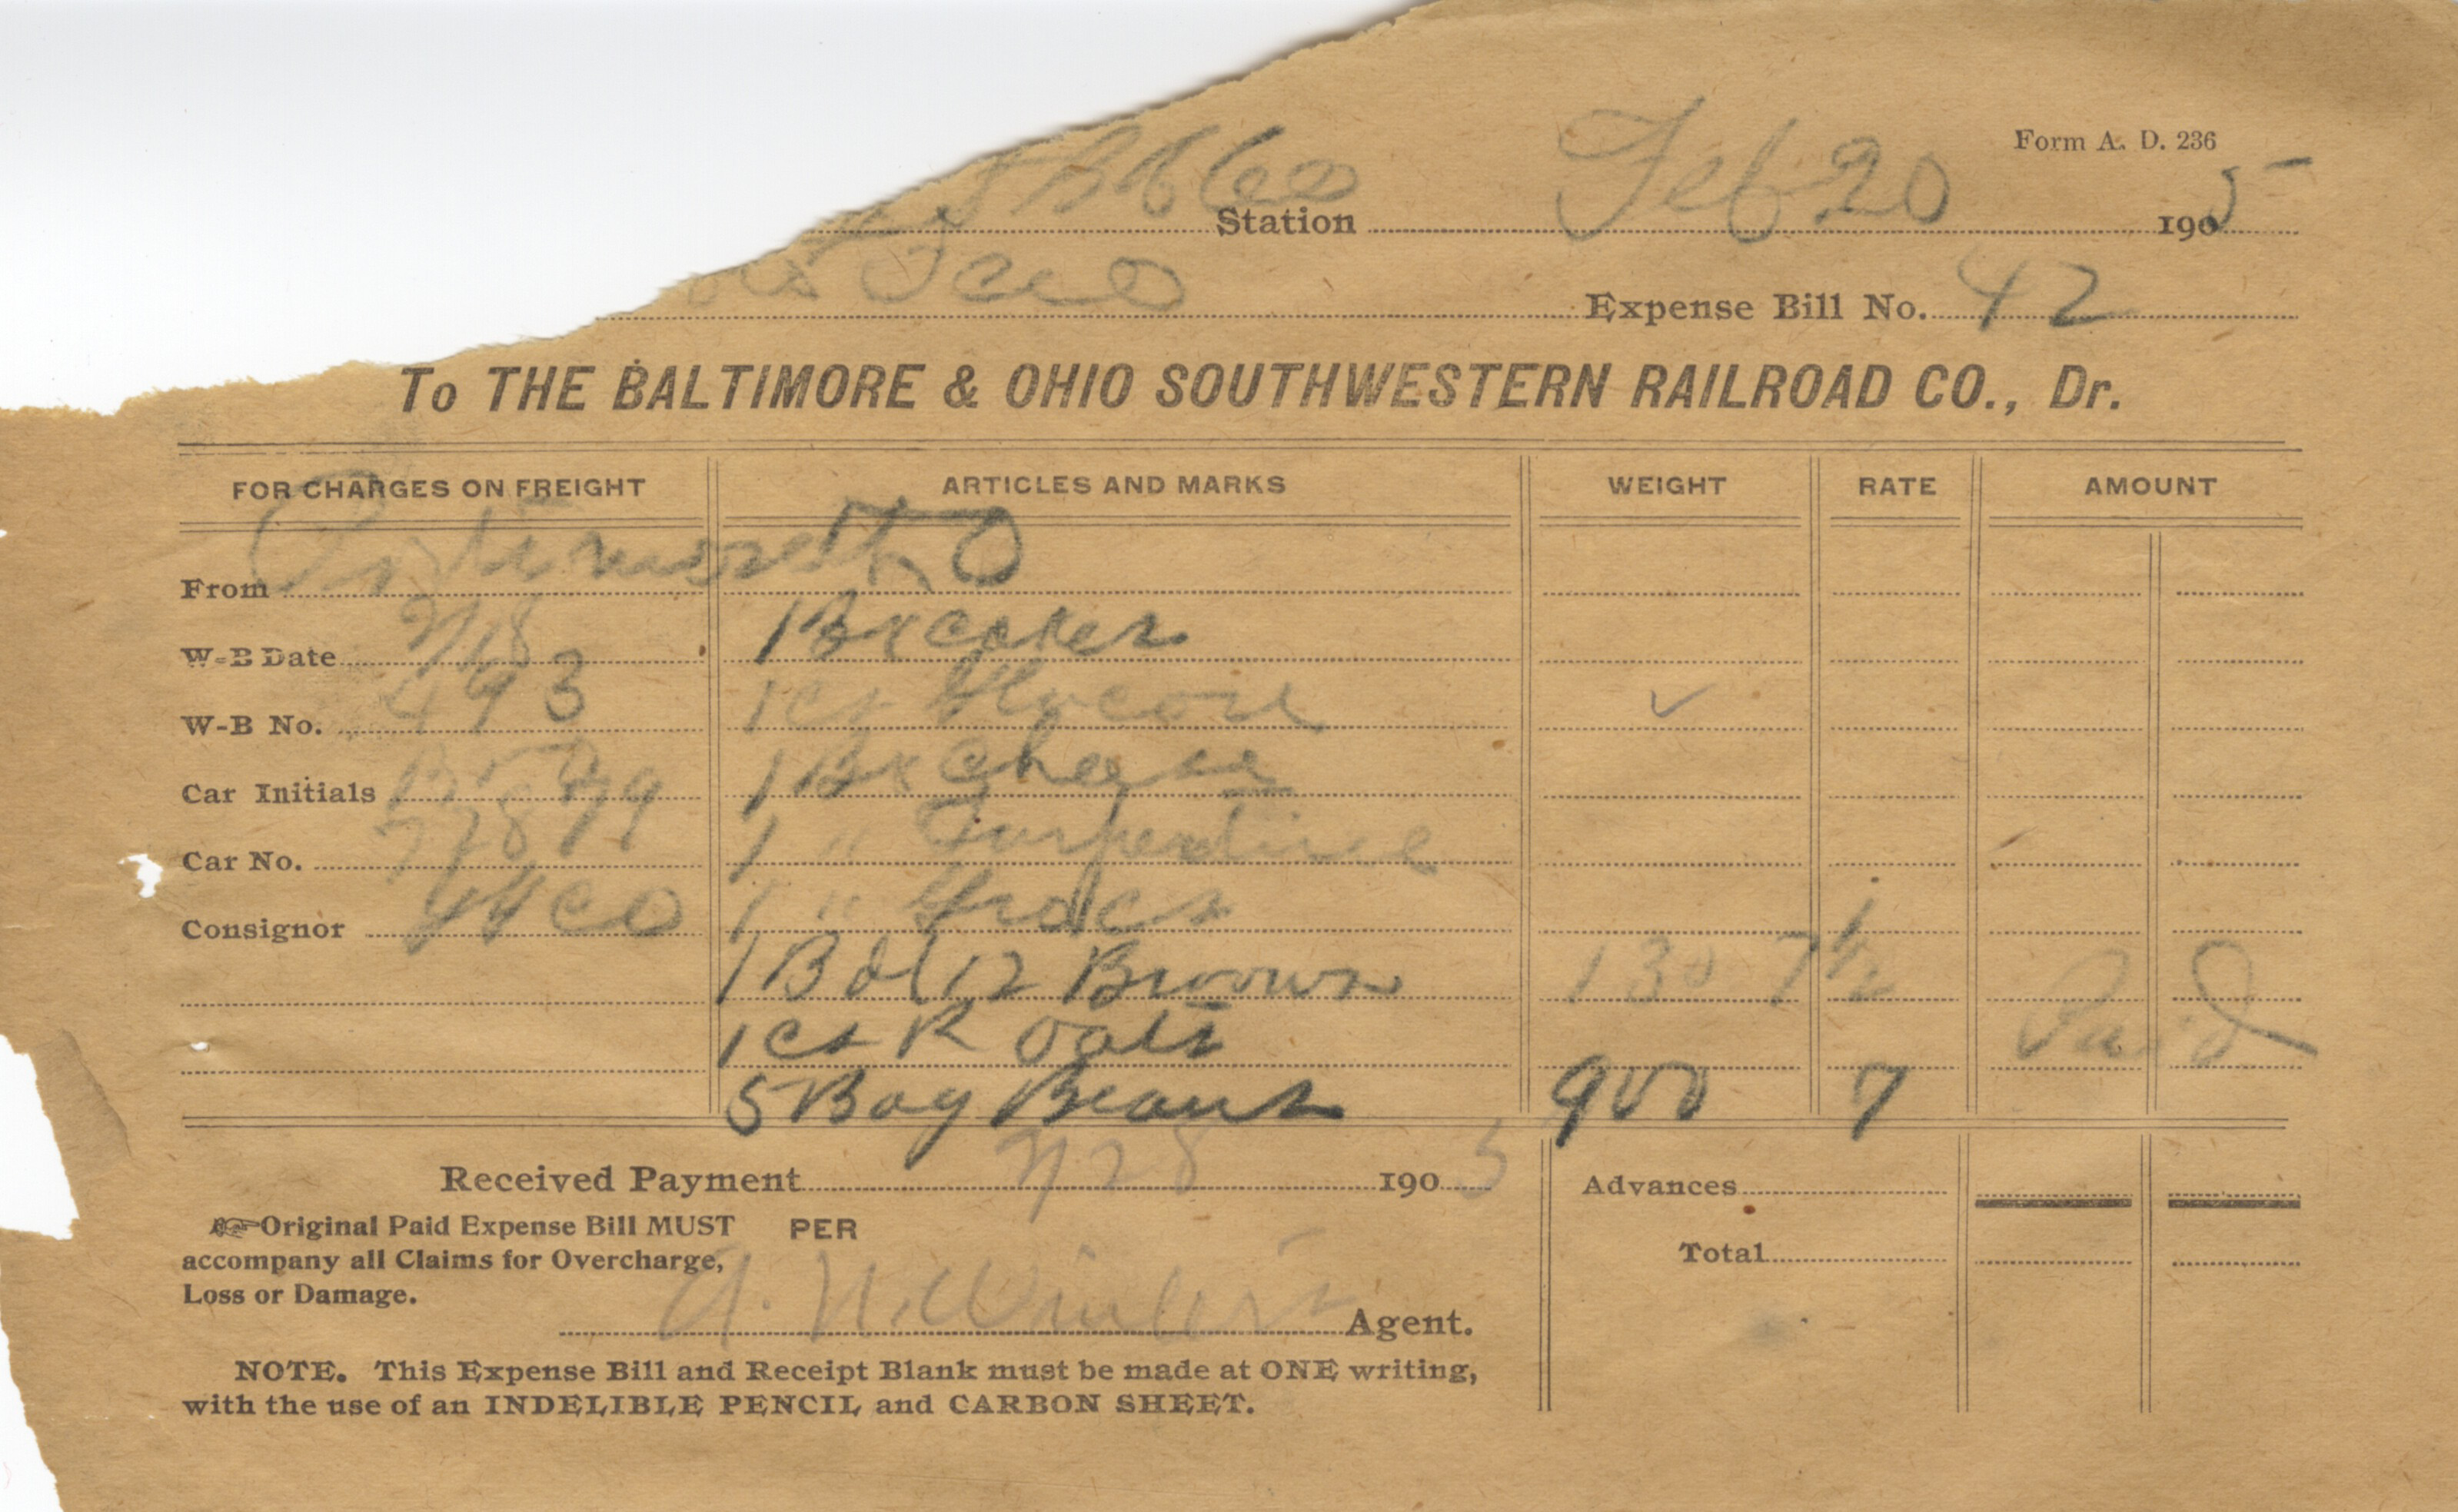 Form A. D. 236
Station Feb 20 1905
Expense Bill No. 42
To THE BALTIMORE & OHIO SOUTHWESTERN RAILROAD CO., Dr.
FOR CHARGES ON FREIGHT ARTICLES AND MARKS WEIGHT RATE AMOUNT
From Portsmouth O
W-B Date 2/18 1 Bx Cakes
W-B No. 493 1 Cs
Car Initials B&O 1 Bx Cheese
Car No. 1 " Turpentine
Consignor 1 "
1 Bdl 12 Brooms 130 7 1/2 Paid
1 Cs R Oats
5 Bag Beans 900 7
Received Payment 2/28 1905 Advances
Original Paid Expense Bill MUST PER
accompany all Claims for Overcharge, Total
Loss or Damage.
Agent.
NOTE. This Expense Bill and Receipt Blank must be made at ONE writing,
with the use of an INDELIBLE PENCIL and CARBON SHEET.